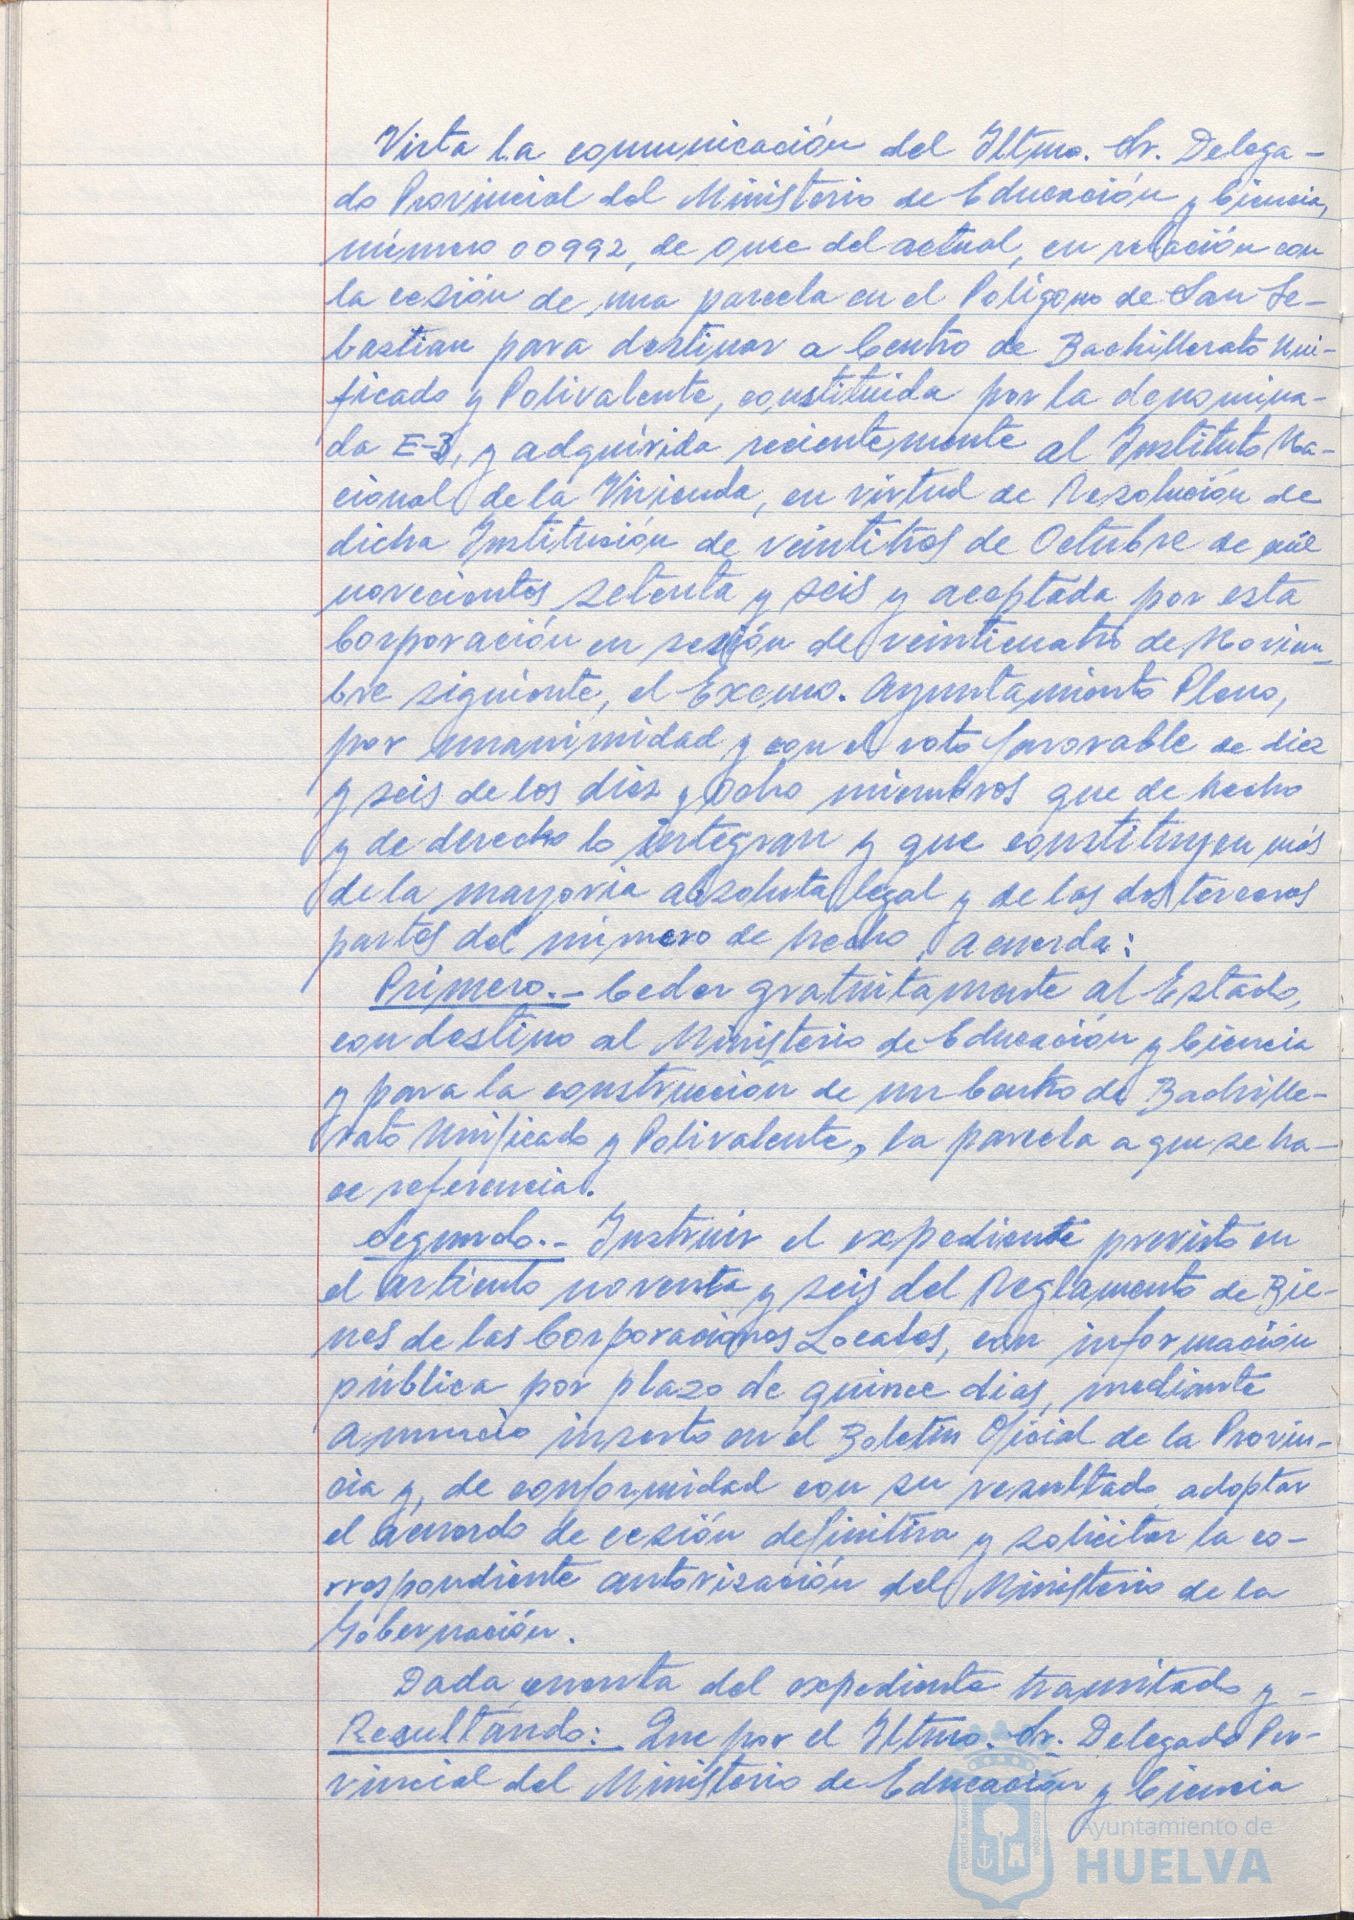 Vista la comunicación del Iltmo. Sr. Delega-
do Provincial del Ministerio de Educación y Ciencia,
número 00992, de once del actual, en relación con
la cesión de una parcela en el Polígono de San Se-
bastian para destinar a Centro de Bachillerato Uni-
ficado y Polivalente, constituida por la denomina-
da E-3, y adquirida recientemente al Instituto Na-
cional de la Vivienda, en virtud de Resolución de
dicha Institución de veintitrés de Octubre de mil
novecientos setenta y seis y aceptada por esta
Corporación en sesión de veinticuatro de Noviem-
bre siguiente, el Excmo. Ayuntamiento Pleno,
por unanimidad y con el voto favorable de diez
y seis de los diez y ocho miembros que de hecho
y de derecho lo integran y que constituyen más
de la mayoria absoluta legal y de las dos terceras
partes del número de hecho, acuerda:
Primero.- Ceder gratuitamente al Estado,
con destino al Ministerio de Educación y Ciencia
y para la construcción de un Centro de Bachille-
rato Unificado y Polivalente, la parcela a que se ha-
ce referencia.
Segundo.- Instruir el expediente previsto en
el artículo noventa y seis del Reglamento de Bie-
nes de las Corporaciones Locales, con información
pública por plazo de quince dias, mediante
anuncio inserto en el Boletín Oficial de la Provin-
cia y, de conformidad con su resultado, adoptar
el acuerdo de cesión definitiva y solicitar la co-
rrespondiente autorización del Ministerio de la
Gobernación.
Dada cuenta del expediente tramitado y -
Resultando: Que por el Iltmo. Sr. Delegado Pro-
vincial del Ministerio de Educación y Ciencia
Ayuntamiento de
HUELVA